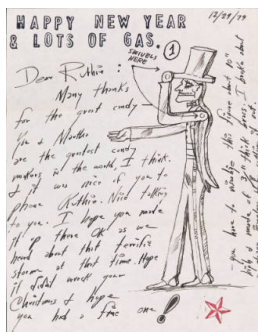 12/29/79
HAPPY NEW YEAR
& LOTS OF GAS.
1
SWIVELS
HERE
Dear Ruthie:
Many thanks
for the great candy
You &
are the greatest candy
makers in the world, I think.
& it was nice of you to
phone Ruthie. Nice talking
to you. I hope you made
it up there OK as we
heard about that terrific
storm at that time. Hope
it didn't wreck your
Christmas & hope
you had a fine one!
- you have to visualize this figure about 10"
high & made of 2" thick